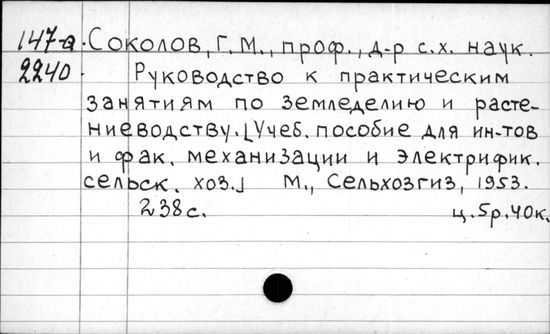 147-а. Соколов, Г.М., проф., д-р с.х. наук.
2240. Руководство к практическим
занятиям по земледелию и расте-
ниеводству. [Учеб. пособие для ин-тов
и фак. механизации и электрифик.
сельск. хоз.] М., Сельхозгиз, 1953.
238 с. ц. 5р. 40к.